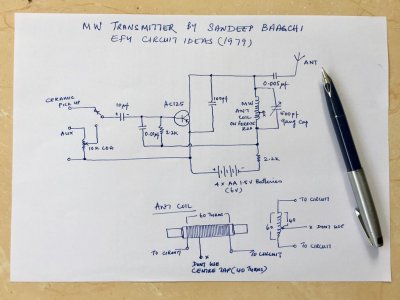 MW TRANSMITTER BY SANDEEP BAAGCHI
EFY CIRCUIT IDEAS (1979)
ANT
0.005µF
CERAMIC
PICK UP
10µf
AC125
100pf
MW
ANT
COIL
ON FERRITE
ROD
500pf
Gang Cap
0.01µf
2.2K
AUX
10K LOG
2.2K
4 X AA 1.5V Batteries
(6V)
ANT COIL
60 TURNS
TO CIRCUIT
TO CIRCUIT
X
DON'T USE
CENTRE TAP (40 TURNS)
TO CIRCUIT
60
40
X DON'T USE
TO CIRCUIT